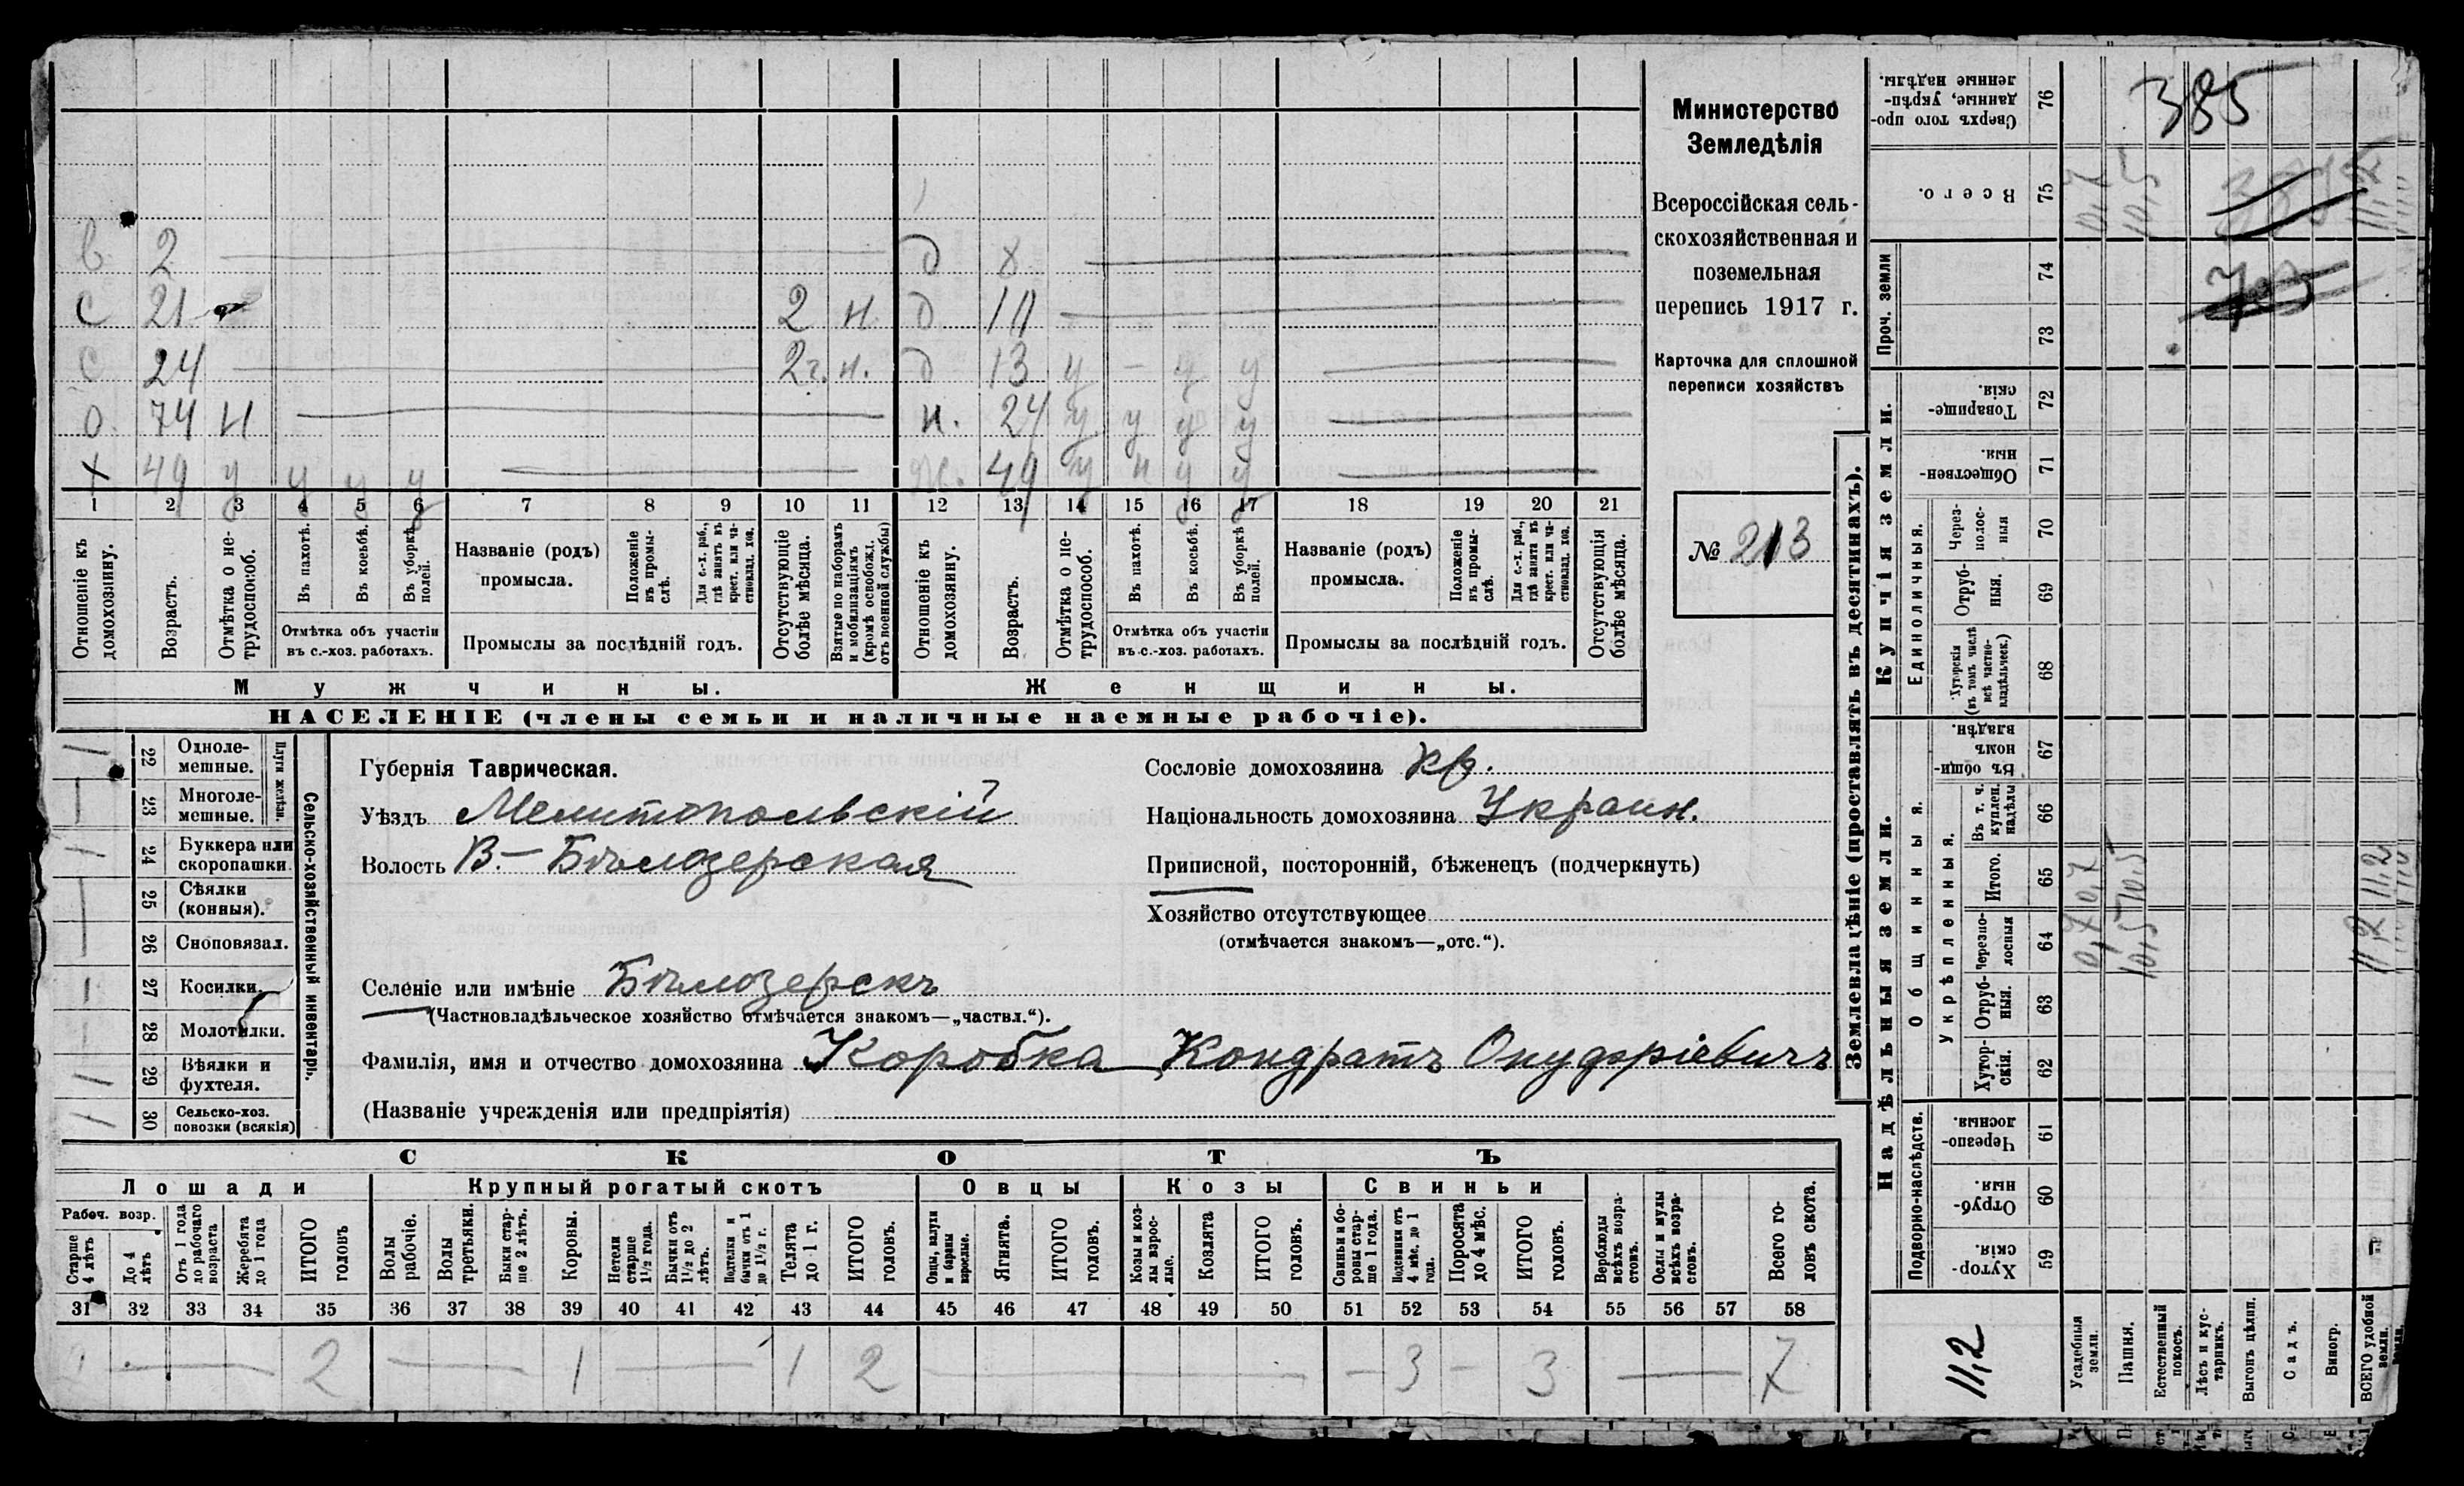 Министерство
Земледѣлія
Всероссійская сель-
скохозяйственная и
поземельная
перепись 1917 г.
Карточка для сплошной
переписи хозяйствъ
№ 213
в 2 д 8
с 21 2 н. д 10
с 24 2г. н. д 13 у — у у
о. 74 н н. 24 у у у у
х 49 у у у у ж. 49 у н у у
1 2 3 4 5 6 7 8 9 10 11 12 13 14 15 16 17 18 19 20 21
Отношеніе къ домохозяину.
Возрастъ.
Отмѣтка о не-трудоспособ.
Въ пахотѣ.
Въ косьбѣ.
Въ уборкѣ полей.
Отмѣтка объ участіи
въ с.-хоз. работахъ.
Названіе (родъ)
промысла.
Положеніе въ промы-слѣ.
Для с.-х. раб., гдѣ занятъ въ крест. или ча-стновлад. хоз.
Промыслы за послѣдній годъ.
Отсутствующіе болѣе мѣсяца.
Взятые по наборамъ и мобилизаціямъ (кромѣ освобожд. отъ военной службы)
Отношеніе къ домохозяину.
Возрастъ.
Отмѣтка о не-трудоспособ.
Въ пахотѣ.
Въ косьбѣ.
Въ уборкѣ полей.
Отмѣтка объ участіи
въ с.-хоз. работахъ.
Названіе (родъ)
промысла.
Положеніе въ промы-слѣ.
Для с.-х. раб., гдѣ занята въ крест. или ча-стновлад. хоз.
Промыслы за послѣдній годъ.
Отсутствующія болѣе мѣсяца.
Мужчины. Женщины.
НАСЕЛЕНІЕ (члены семьи и наличные наемные рабочіе).
Сельско-хозяйственный инвентарь.
Плуги желѣзн.
22 Одноле-мешные. 1
23 Многоле-мешные.
24 Буккера или скоропашки. 1
25 Сѣялки (конныя).
26 Сноповязал.
27 Косилки. 1
28 Молотилки.
29 Вѣялки и фухтеля.
30 Сельско-хоз. повозки (всякія)
Губернія Таврическая.
Уѣздъ Мелитопольскій
Волость В.-Бѣлозерская
Сословіе домохозяина кр.
Національность домохозяина Украин.
Приписной, посторонній, бѣженецъ (подчеркнуть)
Хозяйство отсутствующее
(отмѣчается знакомъ—„отс.“).
Селеніе или имѣніе Бѣлозерскъ
(Частновладѣльческое хозяйство отмѣчается знакомъ—„частвл.“).
Фамилія, имя и отчество домохозяина Коробка Кондратъ Онуфріевичъ
(Названіе учрежденія или предпріятія)
СКОТЪ
Лошади Крупный рогатый скотъ Овцы Козы Свиньи
Рабоч. возр.
Старше 4 лѣтъ
До 4 лѣтъ
Отъ 1 года до рабочаго возраста
Жеребята до 1 года
ИТОГО головъ
Волы рабочіе.
Волы третьяки.
Быки стар-ше 2 лѣтъ.
Коровы.
Нетели старше 1½ года.
Бычки отъ 1½ до 2 лѣтъ.
Подтелки и бычки отъ 1 до 1½ г.
Телята до 1 г.
ИТОГО головъ.
Овцы, валухи и бараны взрослые.
Ягнята.
ИТОГО головъ.
Козы и коз-лы взрос-лые.
Козлята
ИТОГО головъ.
Свиньи и бо-ровы стар-ше 1 года.
Подсвинки отъ 4 мѣс. до 1 года.
Поросята до 4 мѣс.
ИТОГО головъ.
Верблюды всѣхъ возра-стовъ.
Ослы и мулы всѣхъ возра-стовъ.
Всего го-ловъ скота.
31 32 33 34 35 36 37 38 39 40 41 42 43 44 45 46 47 48 49 50 51 52 53 54 55 56 57 58
2 — 2 — 1 — 1 2 — — 3 — 3 — 7
Землевладѣніе (проставлять въ десятинахъ).
Купчія земли.
Надѣльныя земли.
Проч. земли
Единоличныя.
Общинныя.
Укрѣпленныя.
Подворно-наслѣдств.
Сверхъ того про-данные, укрѣп-ленные надѣлы. 76
Всего. 75
74
73
Товарище-скія. 72
Обществен-ныя. 71
Через-полос-ныя 70
Отруб-ныя. 69
Хуторскія (въ томъ числѣ всѣ частно-владѣльческ.) 68
Въ общин-номъ владѣн. 67
Въ т. ч. куплен. надѣлы 66
Итого. 65
Черезпо-лосныя 64
Отруб-ныя. 63
Хутор-скія. 62
Черезпо-лосныя. 61
Отруб-ныя. 60
Хутор-скія. 59
385
0,7 10,5 11,2
0,7 10,5 11,2
0,7 10,5 11,2
11,2
Усадебныя земли.
Пашня.
Естественный покосъ.
Лѣсъ и кус-тарникъ.
Выгонъ цѣлин.
Садъ.
Виногр.
ВСЕГО удобной земли.